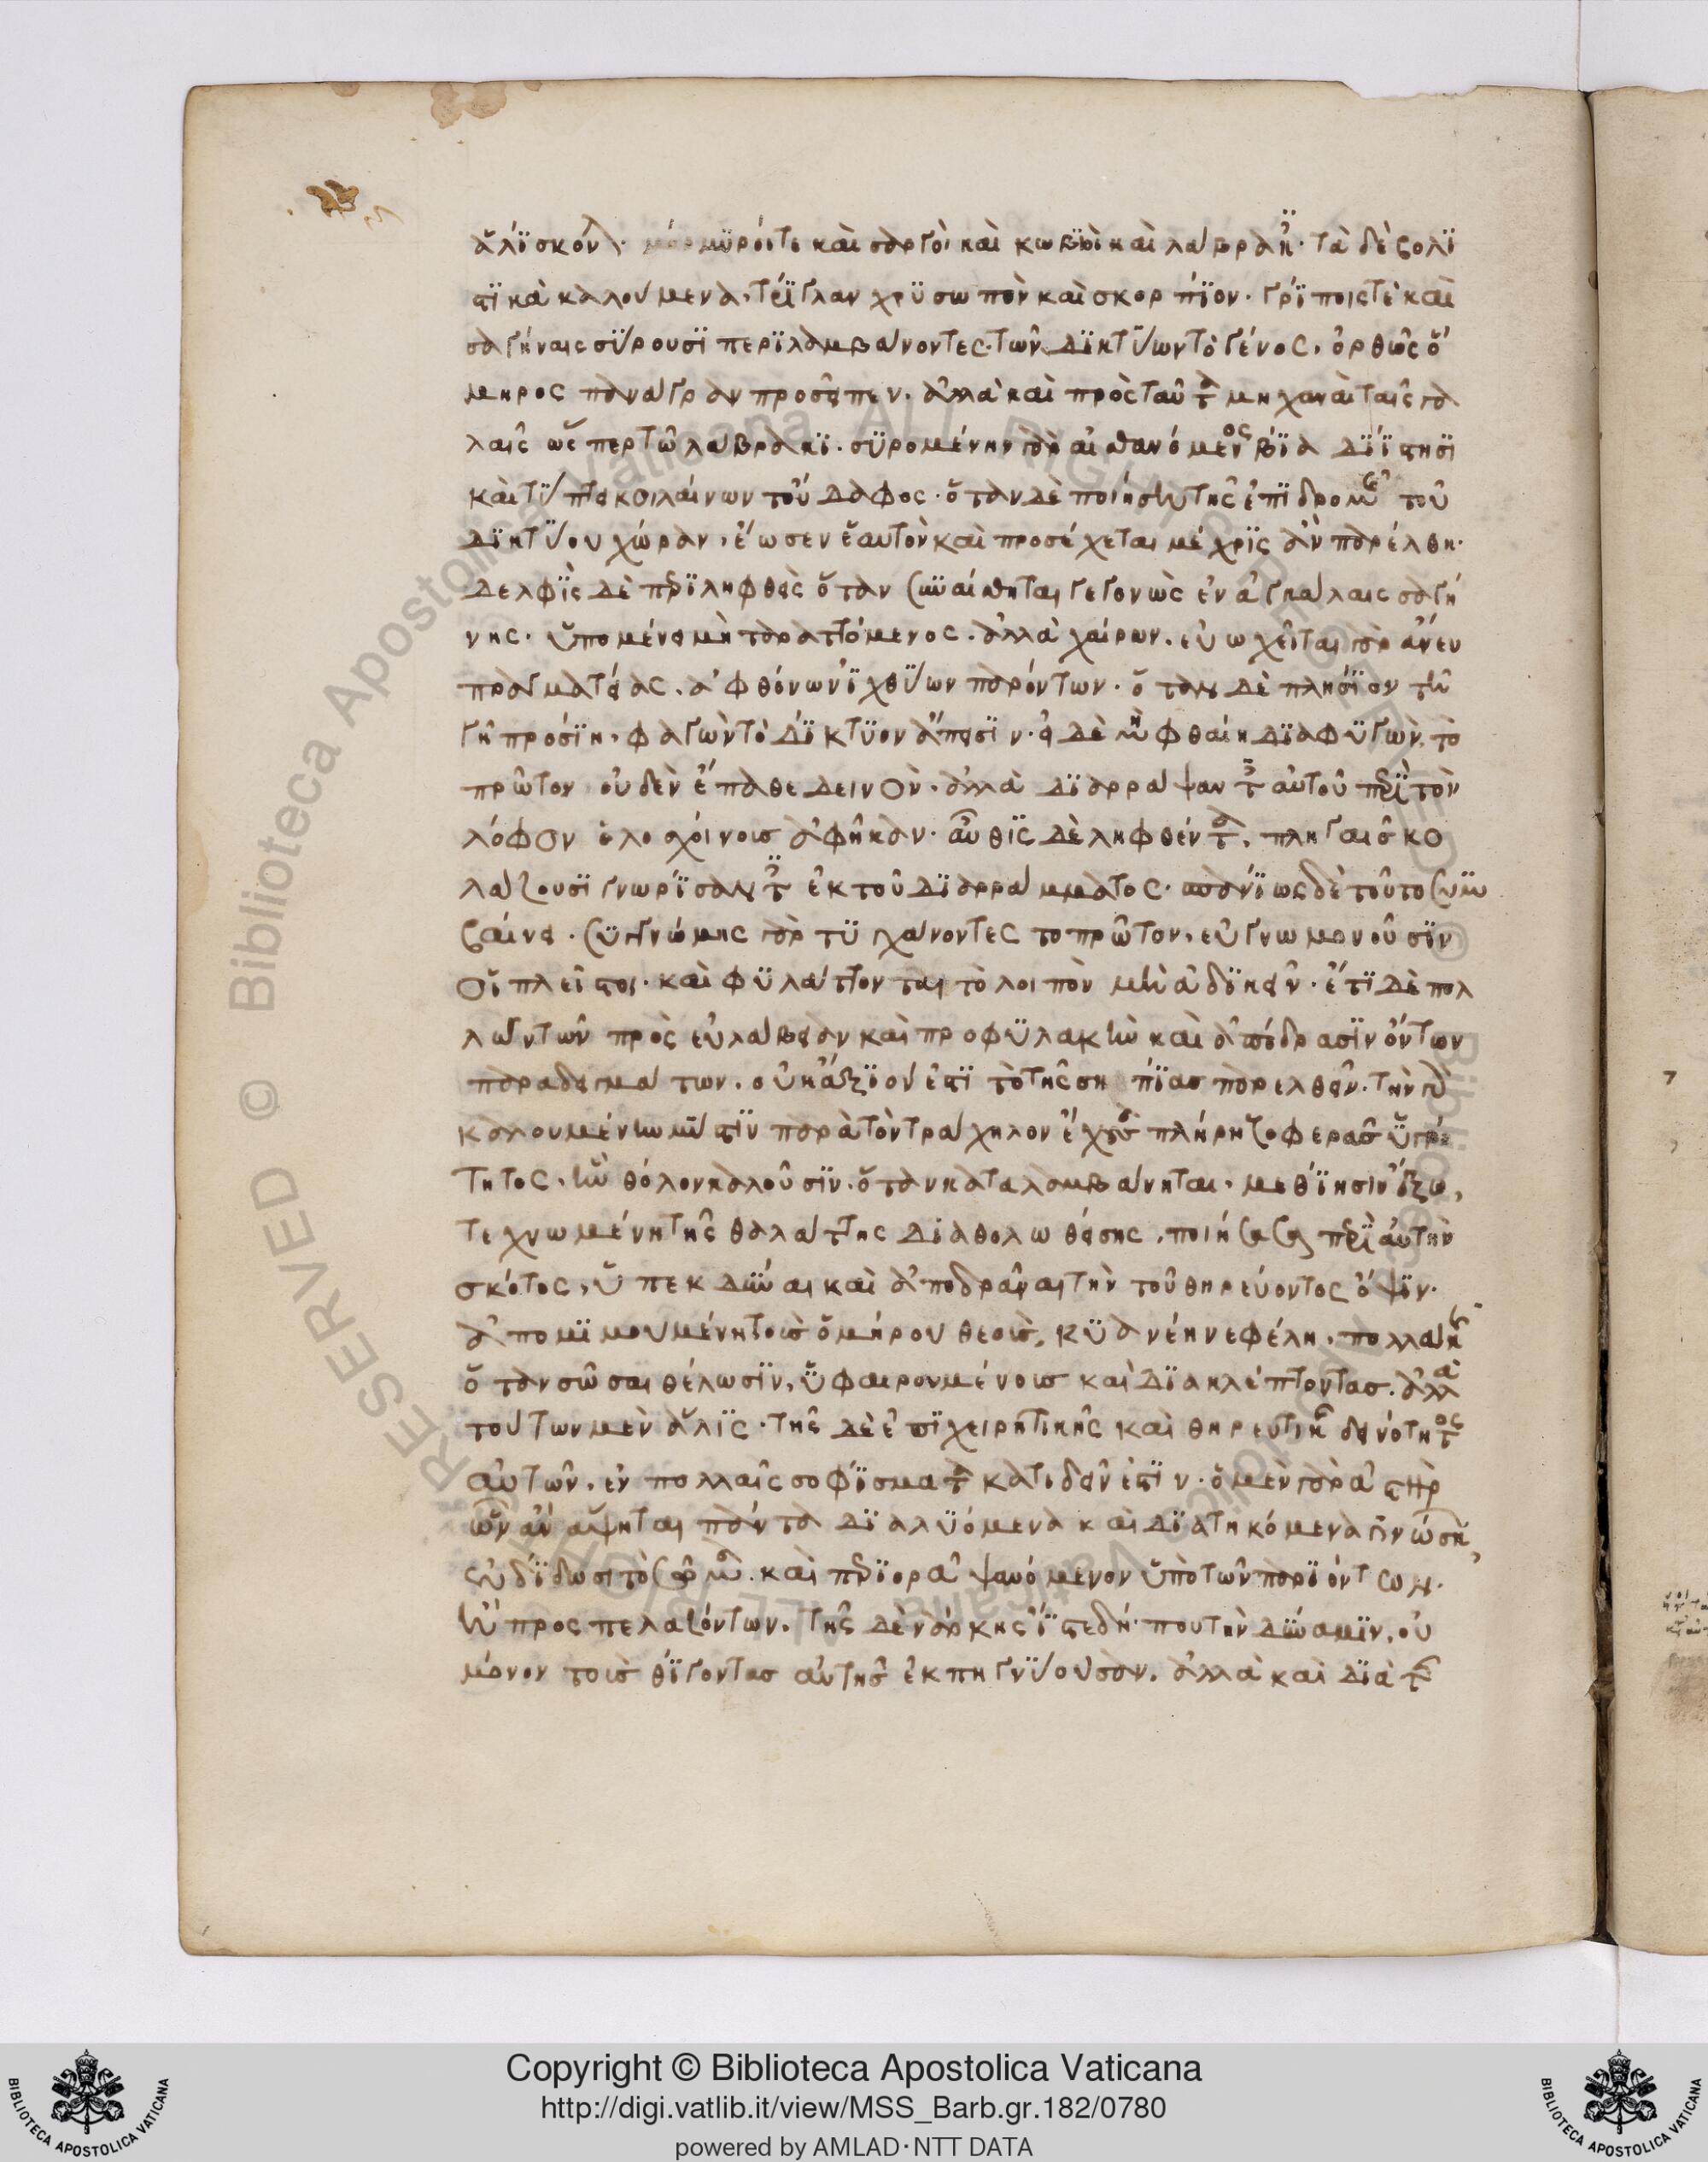 ἁλίσκονται· μόρμυροί τε καὶ σαργοὶ καὶ κωβιοὶ καὶ λάβρακες· τὰ δὲ βολι
στικὰ καλούμενα, τρίγλαν χρυσωπὸν καὶ σκορπίον· γρίποις τὲ καὶ
σαγήναις σύρουσι περιλαμβάνοντες· τῶν δικτύων τὸ γένος, ὀρθῶς ὅ
μηρος πάναγραν προσεῖπεν. ἀλλὰ καὶ πρὸς ταῦτα μηχαναὶ ταῖς γα
λαῖς ὥσπερ τῶ λάβρακι. συρομένην γὰρ αἰσθανόμενος βία διίστησι
καὶ τύπτει κοιλαίνων τοὔδαφος· ὅταν δὲ ποιήση τῆς ἐπιδρομῆς τοῦ
δικτύου χώραν, ἔωσεν ἑαυτὸν καὶ προσέχεται μέχρις ἂν παρέλθη·
δελφὶς δὲ περιληφθεὶς ὅταν συναίσθηται γεγονὼς ἐν ἀγκάλαις σαγή
νης· ὑπομένει μὴ ταραττόμενος. ἀλλὰ χαίρων. εὐωχεῖται γὰρ ἄνευ
πραγματείας. ἀφθόνων ἰχθύων παρόντων. ὅταν δὲ πλησίον τῆ
γῆ προσίη, φαγὼν τὸ δίκτυον ἄπεισιν. εἰ δὲ μὴ φθαίη διαφυγὼν, τὸ
πρῶτον οὐδὲν ἔπαθε δεινὸν. ἀλλὰ διαρράψαντες αὐτοῦ περὶ τὸν
λόφον ὁλοσχοίνοις ἀφῆκαν· αὖθις δὲ ληφθέντα, πληγαῖς κο
λάζουσι γνωρίσαντες ἐκ τοῦ διαρράμματος· σπανίως δὲ τοῦτο συμ
βαίνει. συγγνώμης γὰρ τυγχάνοντες τοπρῶτον, εὐγνωμονοῦσιν
οἱ πλεῖστοι. καὶ φυλάττονται τὸ λοιπὸν μὴ ἀδικεῖν. ἔτι δὲ πολ
λῶν τῶν πρὸς εὐλάβειαν καὶ προφυλακὴν καὶ ἀπόδρασιν ὄντων
παραδειγμάτων. οὐκ ἄξιον ἐστὶ τὸ τῆς σηπίας παρελθεῖν. τὴν γὰρ
καλουμένην μύστιν παρὰ τὸν τράχηλον ἔχουσα πλήρη ζοφερᾶς ὑγρό
τητος, ἣν θόλον καλοῦσιν. ὅταν καταλαμβάνηται, μεθίησιν ἔξω,
τεχνωμένη τῆς θαλάττης διαθολωθείσης, ποιήσασα περὶ αὐτὴν
σκότος, ὑπεκδῦναι καὶ ἀποδρᾶναι τὴν τοῦ θηρεύοντος ὄψιν·
ἀπομιμουμένη τοὺς ὁμήρου θεοὺς, κυανέη νεφέλη, πολλάκις
ὅταν σῶσαι θέλωσιν, ὑφαιρουμένους καὶ διακλέπτοντας. ἀλλὰ
τούτων μὲν ἅλις. τῆς δὲ ἐπιχειρητικῆς καὶ θηρευτικῆς δεινότητος
αὐτῶν, ἐν πολλαῖς σοφίσματα κατιδεῖν ἐστιν. ὁ μὲν γὰρ ἀστὴρ
ὧν ἂν ἅψηται πάντα διαλυόμενα καὶ διατηκόμενα γινώσκων,
ἐνδίδωσι τὸ σῶμα. καὶ περιορᾶ ψαυόμενον ὑπὸ τῶν παριόντων.
ἢ προσπελαζόντων. τῆς δὲ νάρκης ἴστε δή που τὴν δύναμιν, οὐ
μόνον τοὺς θίγοντας αὐτῆς ἐκπηγνύουσαν. ἀλλὰ καὶ διὰ τῆς
Copyright © Biblioteca Apostolica Vaticana
http://digi.vatlib.it/view/MSS_Barb.gr.182/0780
powered by AMLAD·NTT DATA